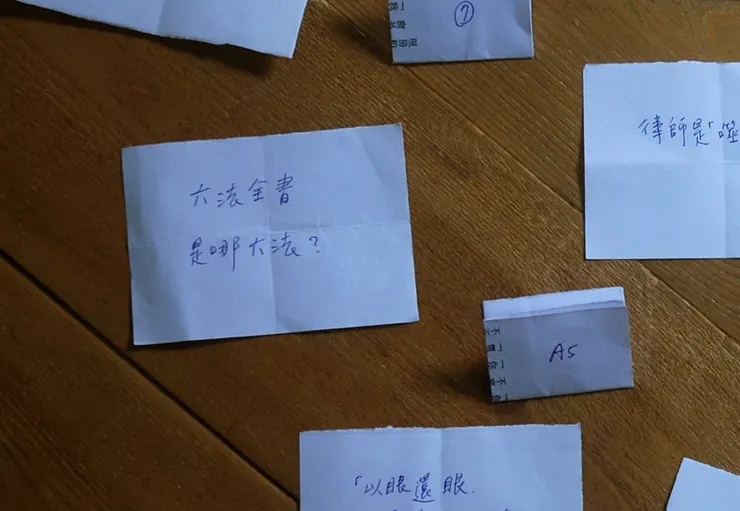 ⑦
律師是「
六法全書
是哪六法?
A5
「以眼還眼